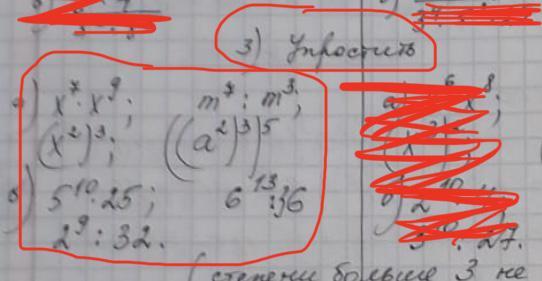 3) Упростить
а) x⁷ · x⁹; m⁷ : m³;
(x²)³; ((a²)³)⁵
б) 5¹⁰ · 25; 6¹³ : 36
2⁹ : 32.
: 27.
(степени больше 3 не